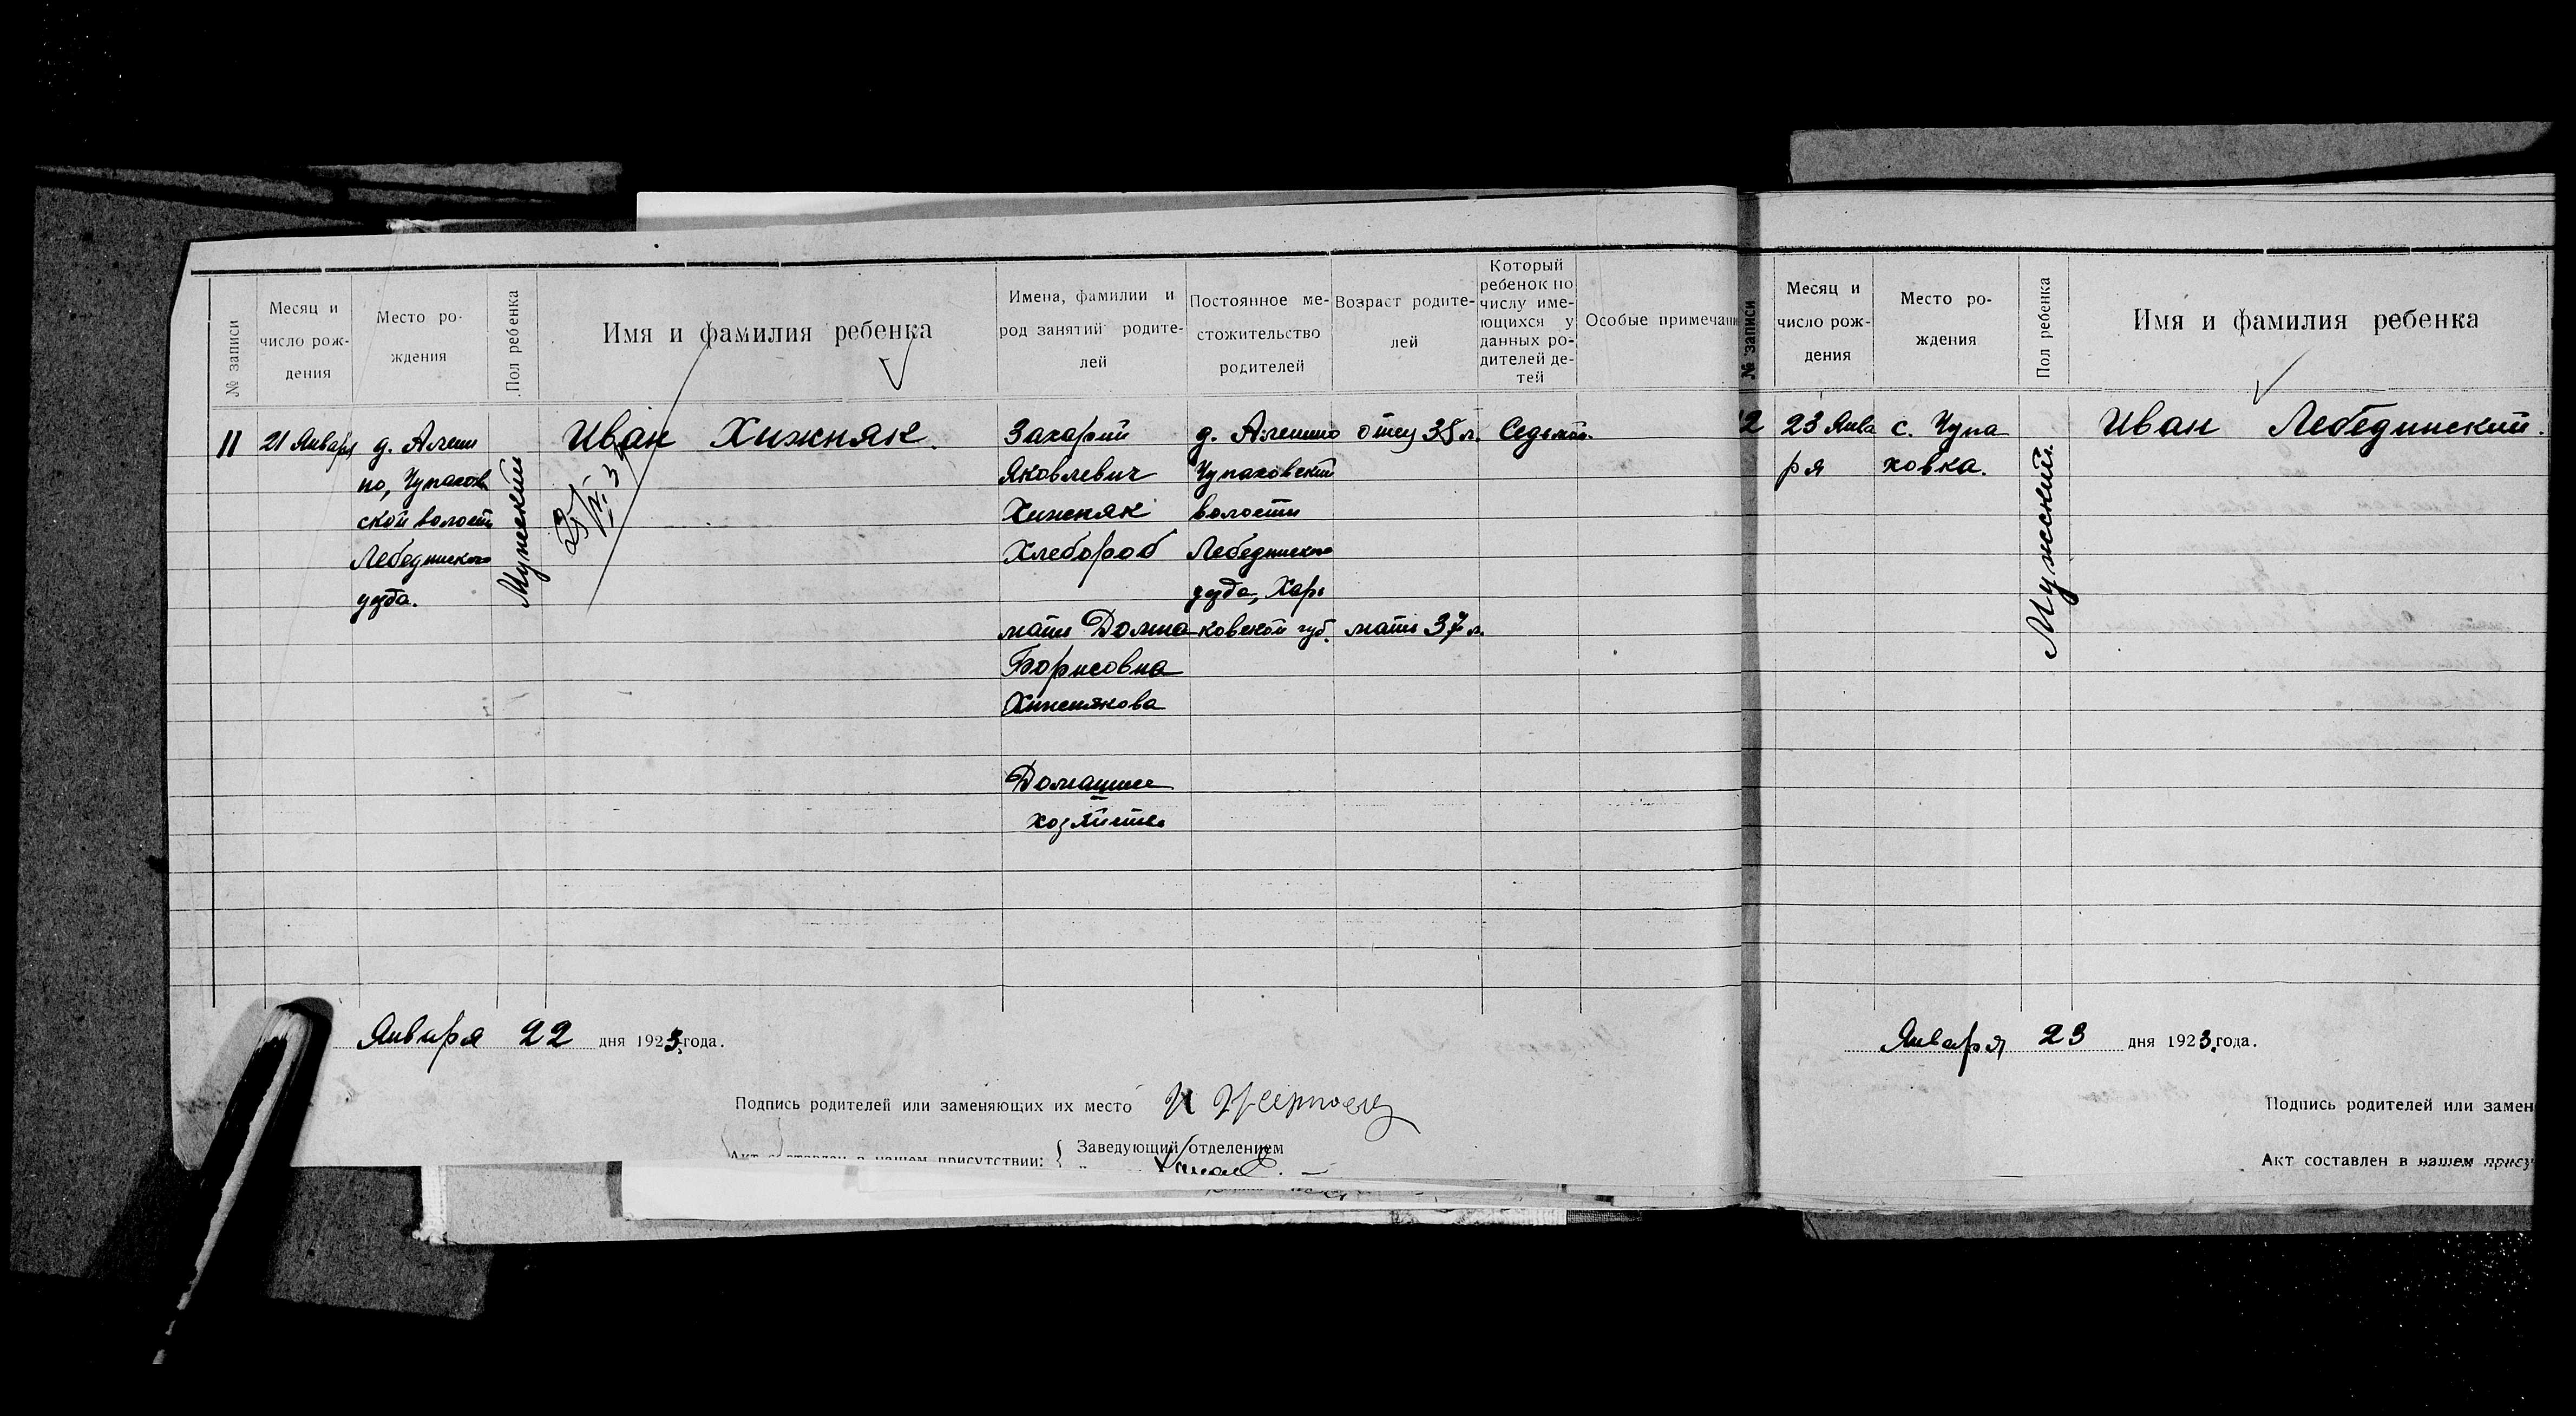 № записи
Месяц и
число рож-
дения
Место ро-
ждения
Пол ребенка
Имя и фамилия ребенка
Имена, фамилии и
род занятий родите-
лей
Постоянное ме-
стожительство
родителей
Возраст родите-
лей
Который
ребенок по
числу име-
ющихся у
данных ро-
дителей де-
тей
Особые примечани
11
21 Января
д. Алеши
но, Чупахов
ской волости
Лебединского
уезда.
Мужеский
Иван Хижняк.
Захарий
Яковлевич
Хижняк
Хлебороб
мать Домна
Борисовна
Хижнякова
Домашнее
хозяйство
д. Алешино
Чупаховской
волости
Лебединского
уезда, Харь
ковской губ.
отец 38 л.
мать 37 л.
Седьмой.
Января 22 дня 1923 года.
Подпись родителей или заменяющих их место
Акт составлен в нашем присутствии:
Заведующий отделением
№ записи
Месяц и
число рож-
дения
Место ро-
ждения
Пол ребенка
Имя и фамилия ребенка
2
23 Янва
ря
с. Чупа
ховка.
Мужский.
Иван Лебединский.
Января 23 дня 1923 года.
Подпись родителей или замен
Акт составлен в нашем прису